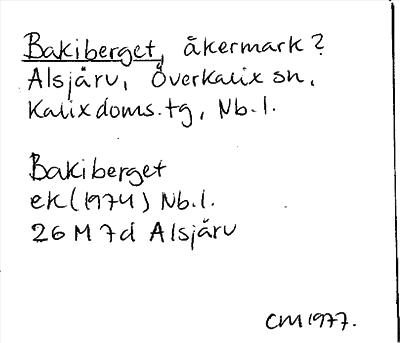 Bakiberget, åkermark?
Alsjärv, Överkalix sn,
Kalix doms.tg, Nb.l.
Bakiberget
ek (1974) Nb.l.
26 M 7d Alsjärv
CM 1977.